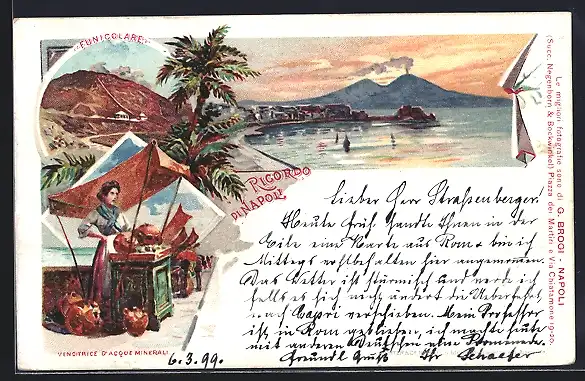 FUNICOLARE
RICORDO
DI NAPOLI
VENDITRICE D'ACQUE MINERALI
Lieber Herr Straßenberger!
Heute früh sandte Ihnen in der
Eile eine Karte aus Rom & bin ich
Mittags wohlbehalten hier angekommen.
Das Wetter ist stürmisch und werde ich
falls es sich nicht ändert die Ueberfahrt
nach Capri verschieben. Mein Professor
ist in Rom geblieben, ich machte heute
mit anderen Deutschen eine Promenade.
Freundl Gruß Ihr Schaefer
6.3.99.
Le migliori fotografie sono di G. BROGI - NAPOLI
(Succ. Negenborn & Bockwinkel) Piazza dei Martiri e Via Chiatamone 19-20.